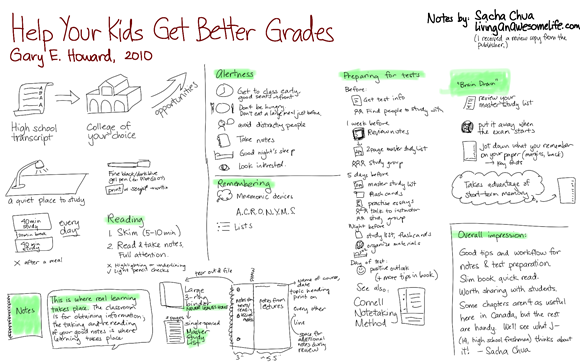 Help Your Kids Get Better Grades
Gary E. Howard, 2010
Notes by: Sacha Chua
livinganawesomelife.com
(I received a review copy from the
publisher.)
High school
transcript
College of
your choice
opportunities
a quiet place to study
40 min
study
every
day!
x after a meal
Fine black/dark blue
gel pen
print
Reading
1. Skim (5-10 min)
2. Read & take notes
Full attention.
x Highlighting or underlining
✓ Light pencil checks
Notes
This is where real learning
takes place. The classroom
is for obtaining information;
the taking and rereading
of your good notes is where
learning takes place
tear out & file
Large
3-ring
binder
single-spaced
Master
Study
List
notes from
lectures
name of course,
date
topic heading
print on
every other
line
space for
additional
notes during
review
Alertness
Get to class early,
good seats - front
Don't be hungry.
Don't eat a large meal just before
avoid distracting people
Take notes
Good night's sleep
Look interested.
Remembering
Mnemonic devices
A.C.R.O.N.Y.M.S
Lists
Preparing for tests
Before:
Get test info
Find people to study with
1 week before
Review notes
2 page master study list
Study group
5 days before
master study list
flash cards
practise essays
talk to instructor
study group
Night before
study list, flashcards
organize materials
Day of test:
positive outlook
(+ more tips in book)
See also:
Cornell
Notetaking
Method
"Brain Drain"
review your
master study list
put it away
when the
exam starts
Jot down what you remember
on your paper (margins, back)
→ key facts
Takes advantage of
short-term memory
Overall impression:
Good tips and workflow for
notes & test preparation.
Slim book, quick read.
Worth sharing with students.
Some chapters aren't as useful
here in Canada, but the rest
are handy. We'll see what J-
(14, high school freshman) thinks about
it! - Sacha Chua